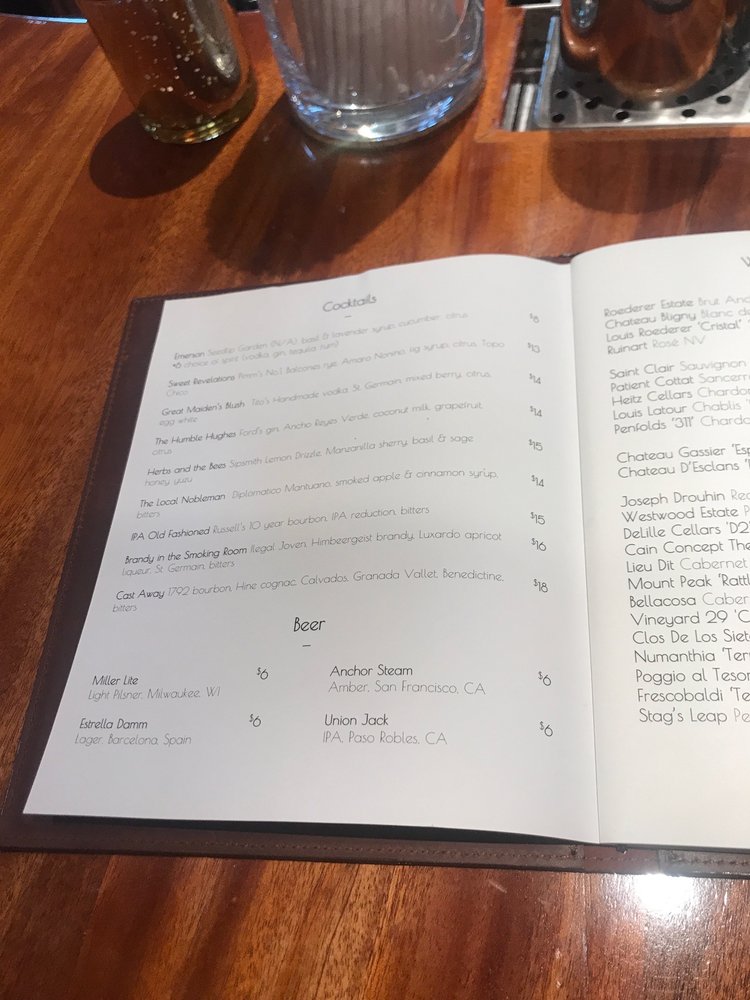 Cocktails
Emerson Seedlip Garden (N/A), basil & lavender syrup, cucumber, citrus $8
+6 choice of spirit (vodka, gin, tequila, rum)
Sweet Revelations Pimm's No.1, Balcones rye, Amaro Nonino, fig syrup, citrus, Topo $13
Chico
Great Maiden's Blush Tito's Handmade vodka, St. Germain, mixed berry, citrus, $14
egg white
The Humble Hughes Ford's gin, Ancho Reyes Verde, coconut milk, grapefruit, $14
citrus
Herbs and the Bees Sipsmith Lemon Drizzle, Manzanilla sherry, basil & sage $15
honey, yuzu
The Local Nobleman Diplomatico Mantuano, smoked apple & cinnamon syrup, $14
bitters
IPA Old Fashioned Russell's 10 year bourbon, IPA reduction, bitters $15
Brandy in the Smoking Room Ilegal Joven, Himbeergeist brandy, Luxardo apricot $16
liqueur, St. Germain, bitters
Cast Away 1792 bourbon, Hine cognac, Calvados, Granada Vallet, Benedictine, $18
bitters
Beer
Miller Lite $6
Light Pilsner, Milwaukee, WI
Anchor Steam $6
Amber, San Francisco, CA
Estrella Damm $6
Lager, Barcelona, Spain
Union Jack $6
IPA, Paso Robles, CA
Roederer Estate Brut, And
Chateau Bligny Blanc de
Louis Roederer 'Cristal'
Ruinart Rosé NV
Saint Clair Sauvignon
Patient Cottat Sancerr
Heitz Cellars Chardon
Louis Latour Chablis
Penfolds '311' Chardo
Chateau Gassier 'Esp
Chateau D'Esclans
Joseph Drouhin Red
Westwood Estate P
DeLille Cellars 'D2'
Cain Concept The
Lieu Dit Cabernet
Mount Peak 'Rattl
Bellacosa Cabern
Vineyard 29 'C
Clos De Los Siete
Numanthia 'Terr
Poggio al Tesor
Frescobaldi 'Te
Stag's Leap Pe